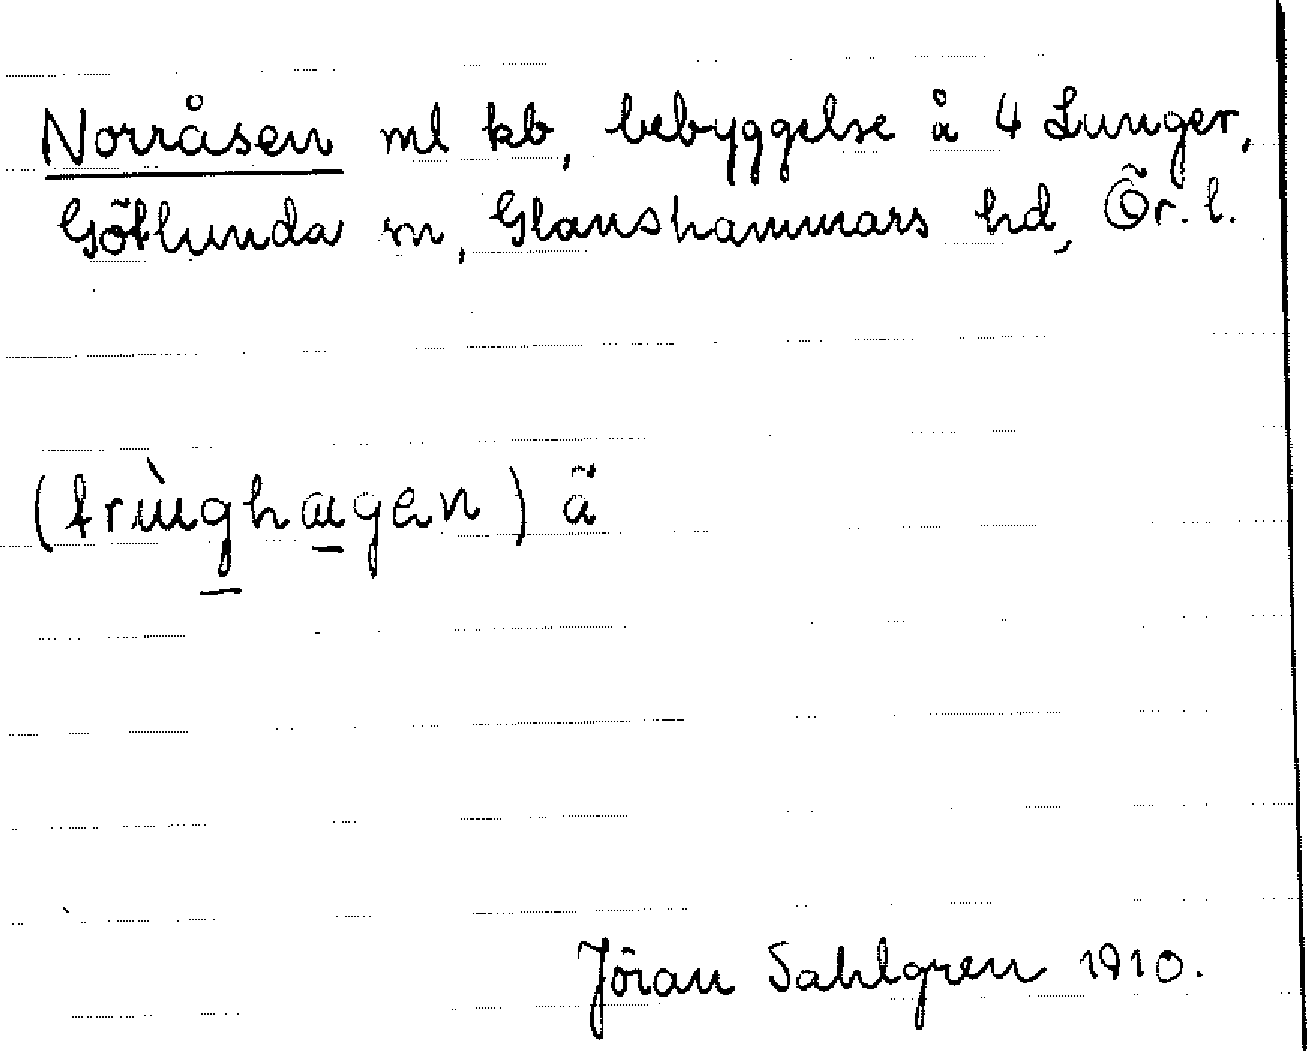 Norråsen ml kb, bebyggelse å 4 Lunger,
Götlunda sn, Glanshammars hd, Ör. l.
ä
Jöran Sahlgren 1910.